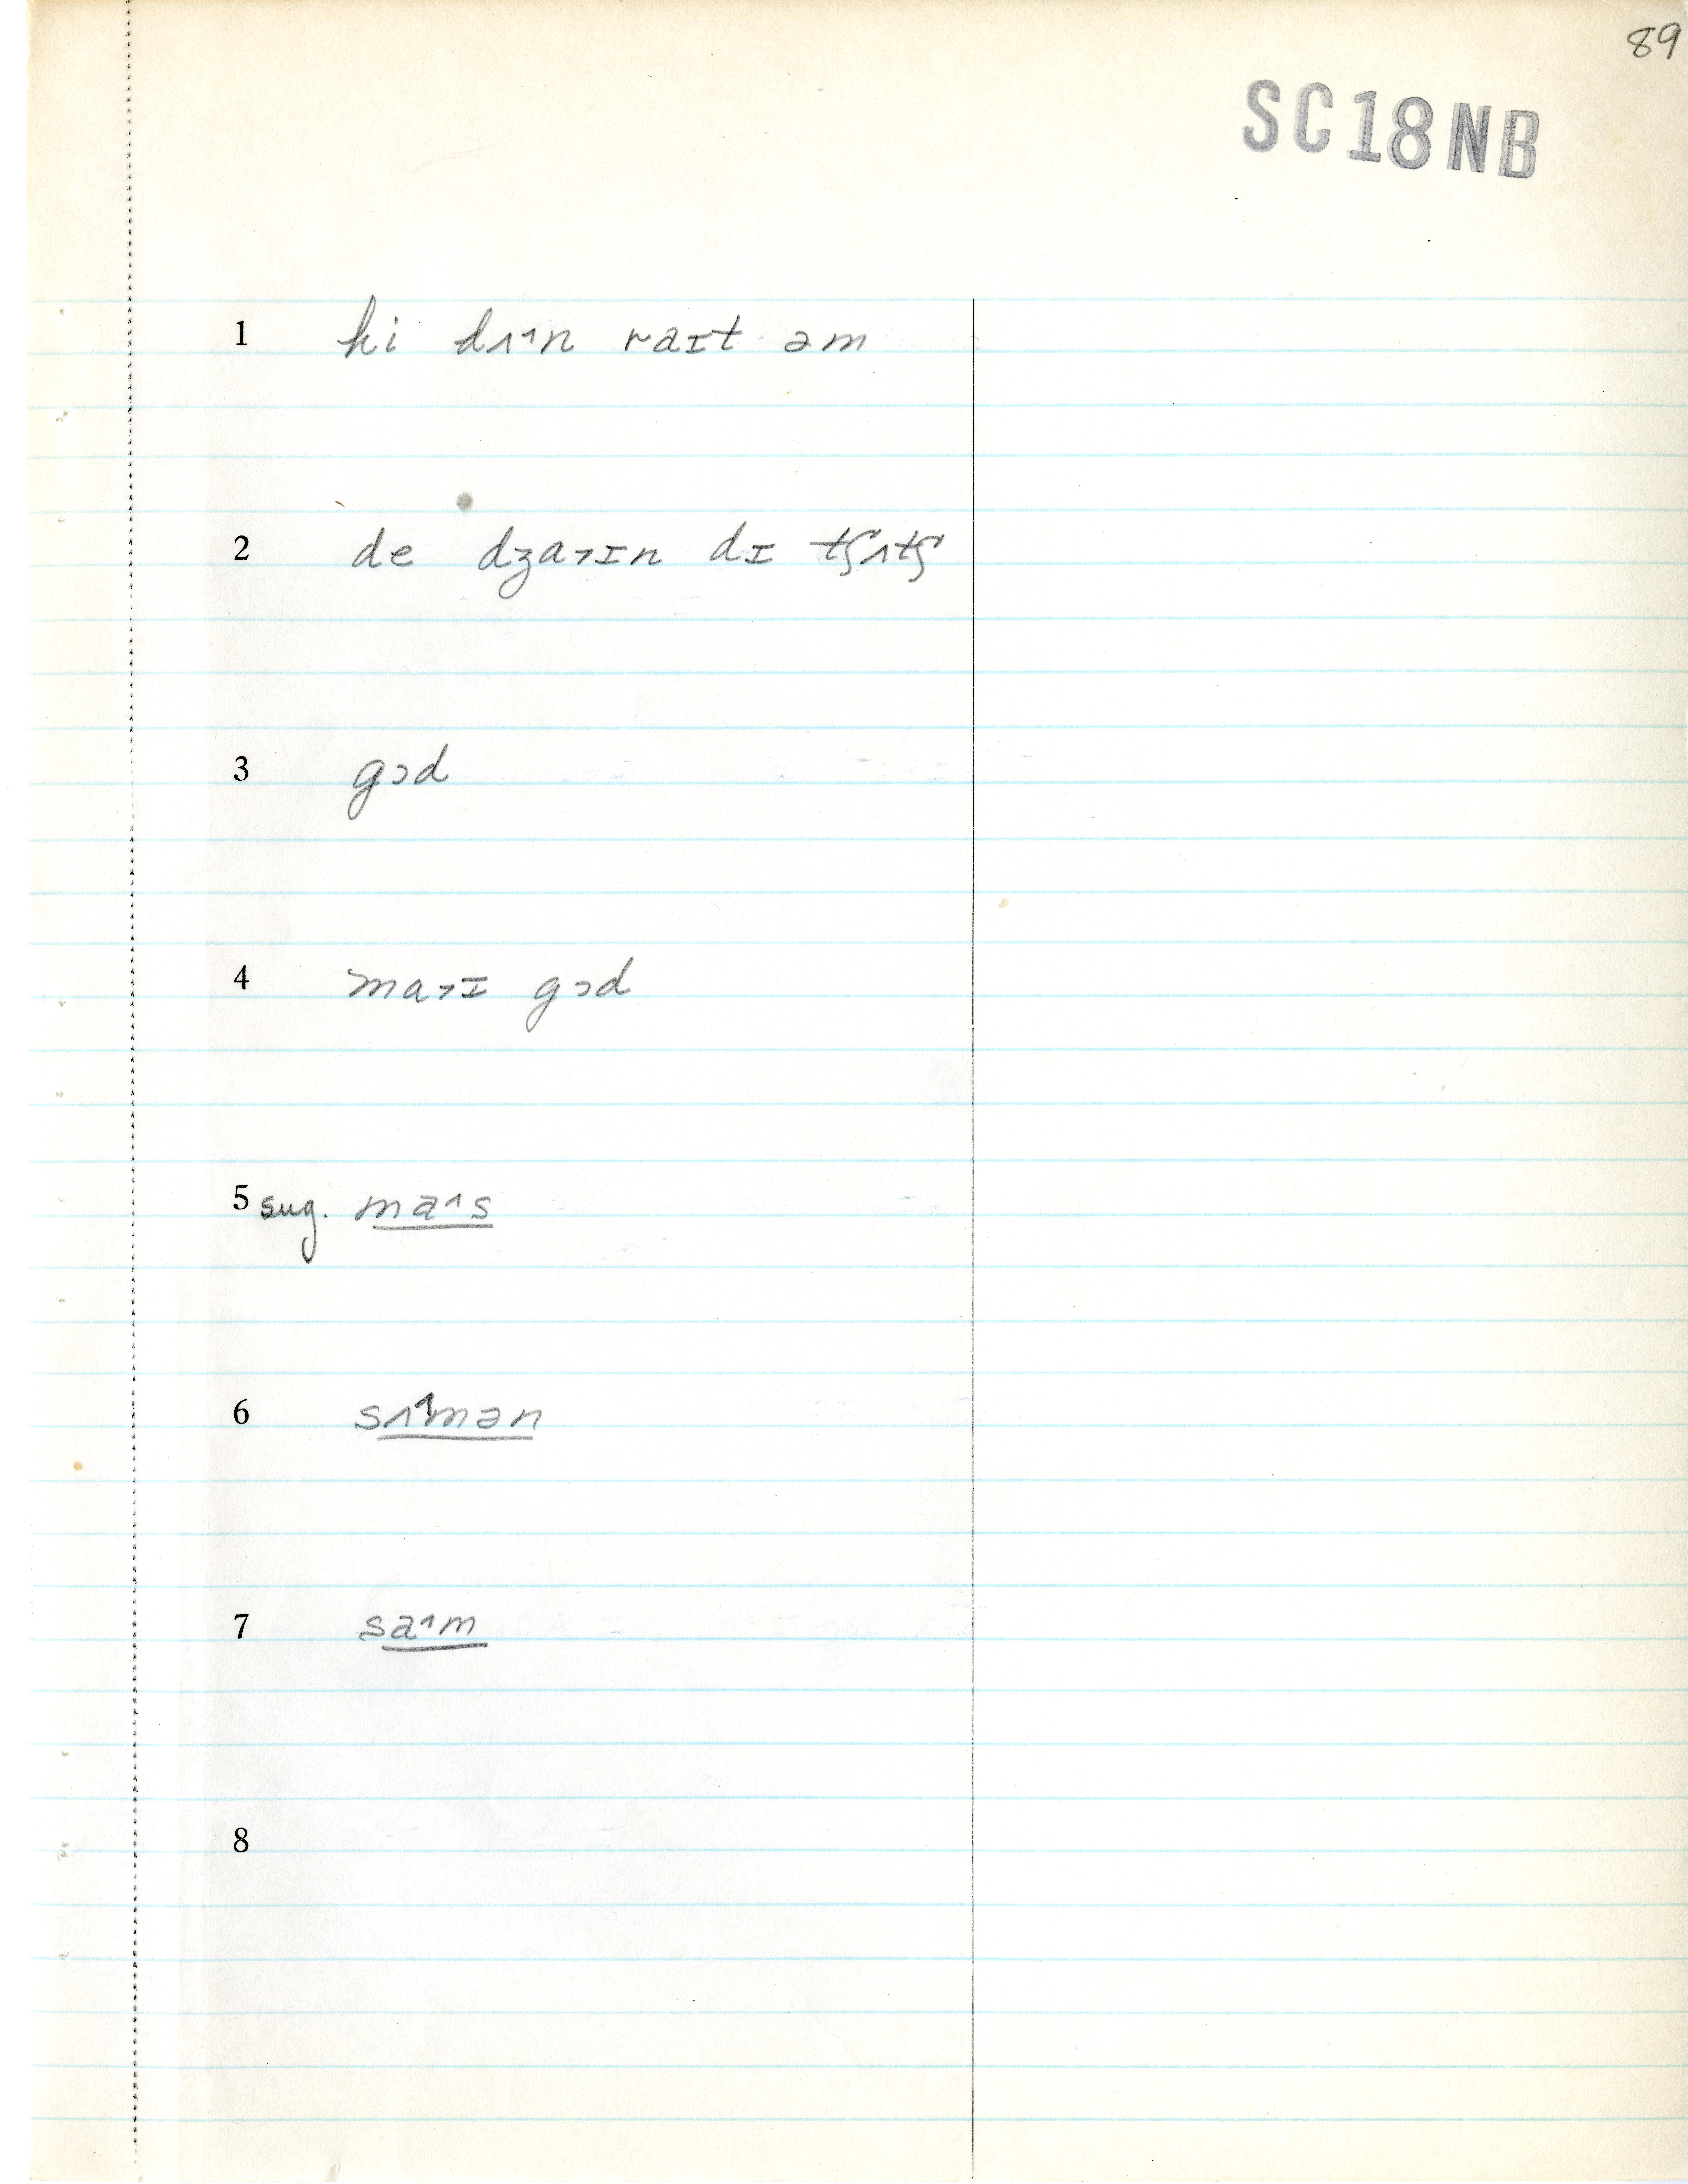 89
SC18NB
1 hi dʌ˄n raɪt əm
2 de dʒa˃ɪn dɪ tʃʌtʃ
3 gɔd
4 ma˃ɪ gɔd
5 sug. ma˄s
6 sʌ˄mən
7 sa˄m
8